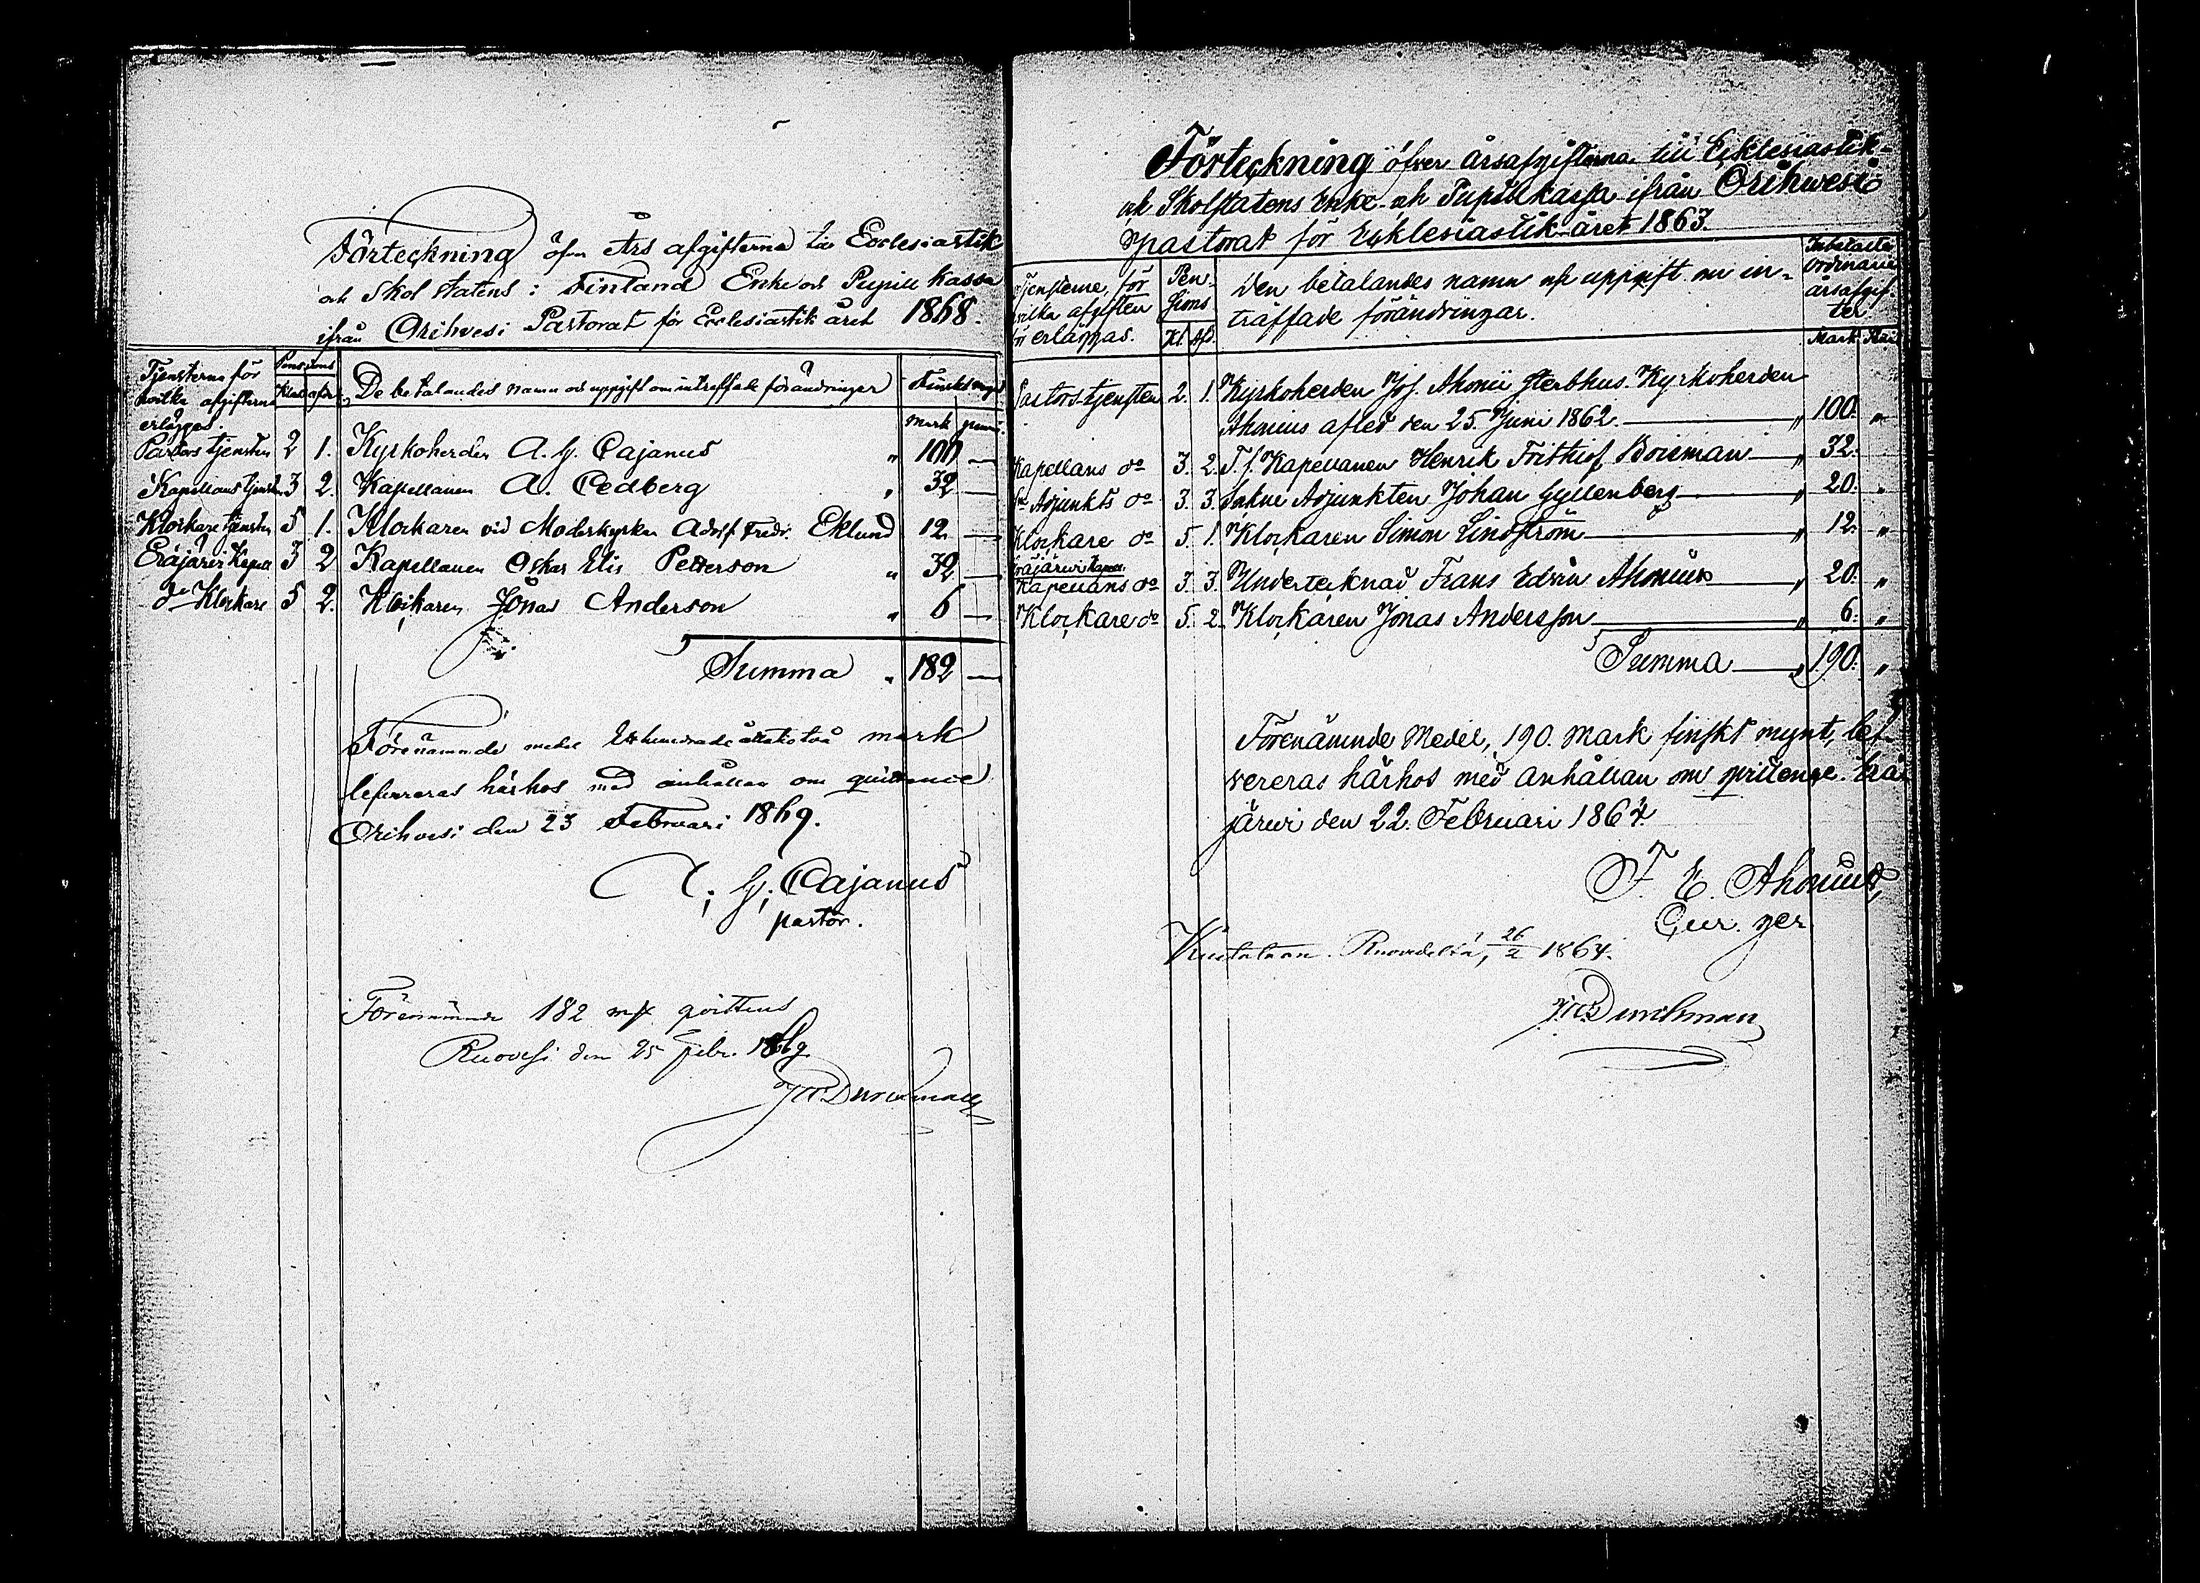 Förteckning öfver Års afgifterna till Ecclesiastik
och Skol statens i Finland Enke och Pupill kassa
ifrån Orihvesi Pastorat för Ecclesiastik året 1868.
Tjensterna för hvilka afgifterna erlägges.
Pensions
Klass afd.
De betalandes namn och uppgift om inträffade förändringar
Finskt mynt
mark penni.
Pastors tjensten 2 1. Kyrkoherden A. G. Cajanus " 100 —
Kapellans tjensten 3 2. Kapellanen A. Cedberg " 32 —
Klockare tjensten 5 1. Klockaren vid Moderkyrkan Adolf Fredr. Eklund 12 —
Eräjärvi Kapell 3 2 Kapellanen Oskar Elis Petterson " 32 —
do Klockare 5 2. Klockaren Jonas Anderson " 6 —
Summa " 182 —
Förenämnde medel Etthundrade åttatiotvå mark
lefvereras härhos med anhållan om quittence
Orihvesi den 23 Februari 1869.
A. G. Cajanus
pastor.
Förenämnde 182 mk qvitteras
Ruovesi den 25 Febr. 1869
Durchman
Förteckning öfver årsafgifterna till Ecklesiastik-
och Skolstatens Enke- och Pupillkassa ifrån Orihwesi
pastorat för Ecklesiastik-året 1863.
Tjensterne, för hvilka afgiften erlägges.
Pensions
Kl. afd.
Den betalandes namn och uppgift om in-
träffade förändringar.
Inbetalta ordinarie årsafgifter
Mark
Pastors-tjensten 2. 1. Kyrkoherden Jos. Ahonii sterbhus. Kyrkoherden
Ahonius afled den 25. Juni 1862. — " 100. "
Kapellans do 3. 2. T. f. Kapellanen Henrik Frithiof Boisman — " 32.
Adjunkts do 3. 3. Sakne Adjunkten Johan Gyllenberg — " 20. "
Klockare do 5. 1. Klockaren Simon Lindström — " 12. "
Eräjärwi Kapell.
Kapellans do 3. 3. Undertecknad Frans Edvin Ahonius — " 20. "
Klockare do 5. 2. Klockaren Jonas Andersson — " 6. "
Summa — " 190. "
Förenämnde Medel, 190. Mark finskt mynt, lef-
vereras härhos med anhållan om qvittence. Erä-
järwi den 22. Februari 1864.
F. E. Ahonius,
Ruovedeltä, 26/2 1864.
Durchman